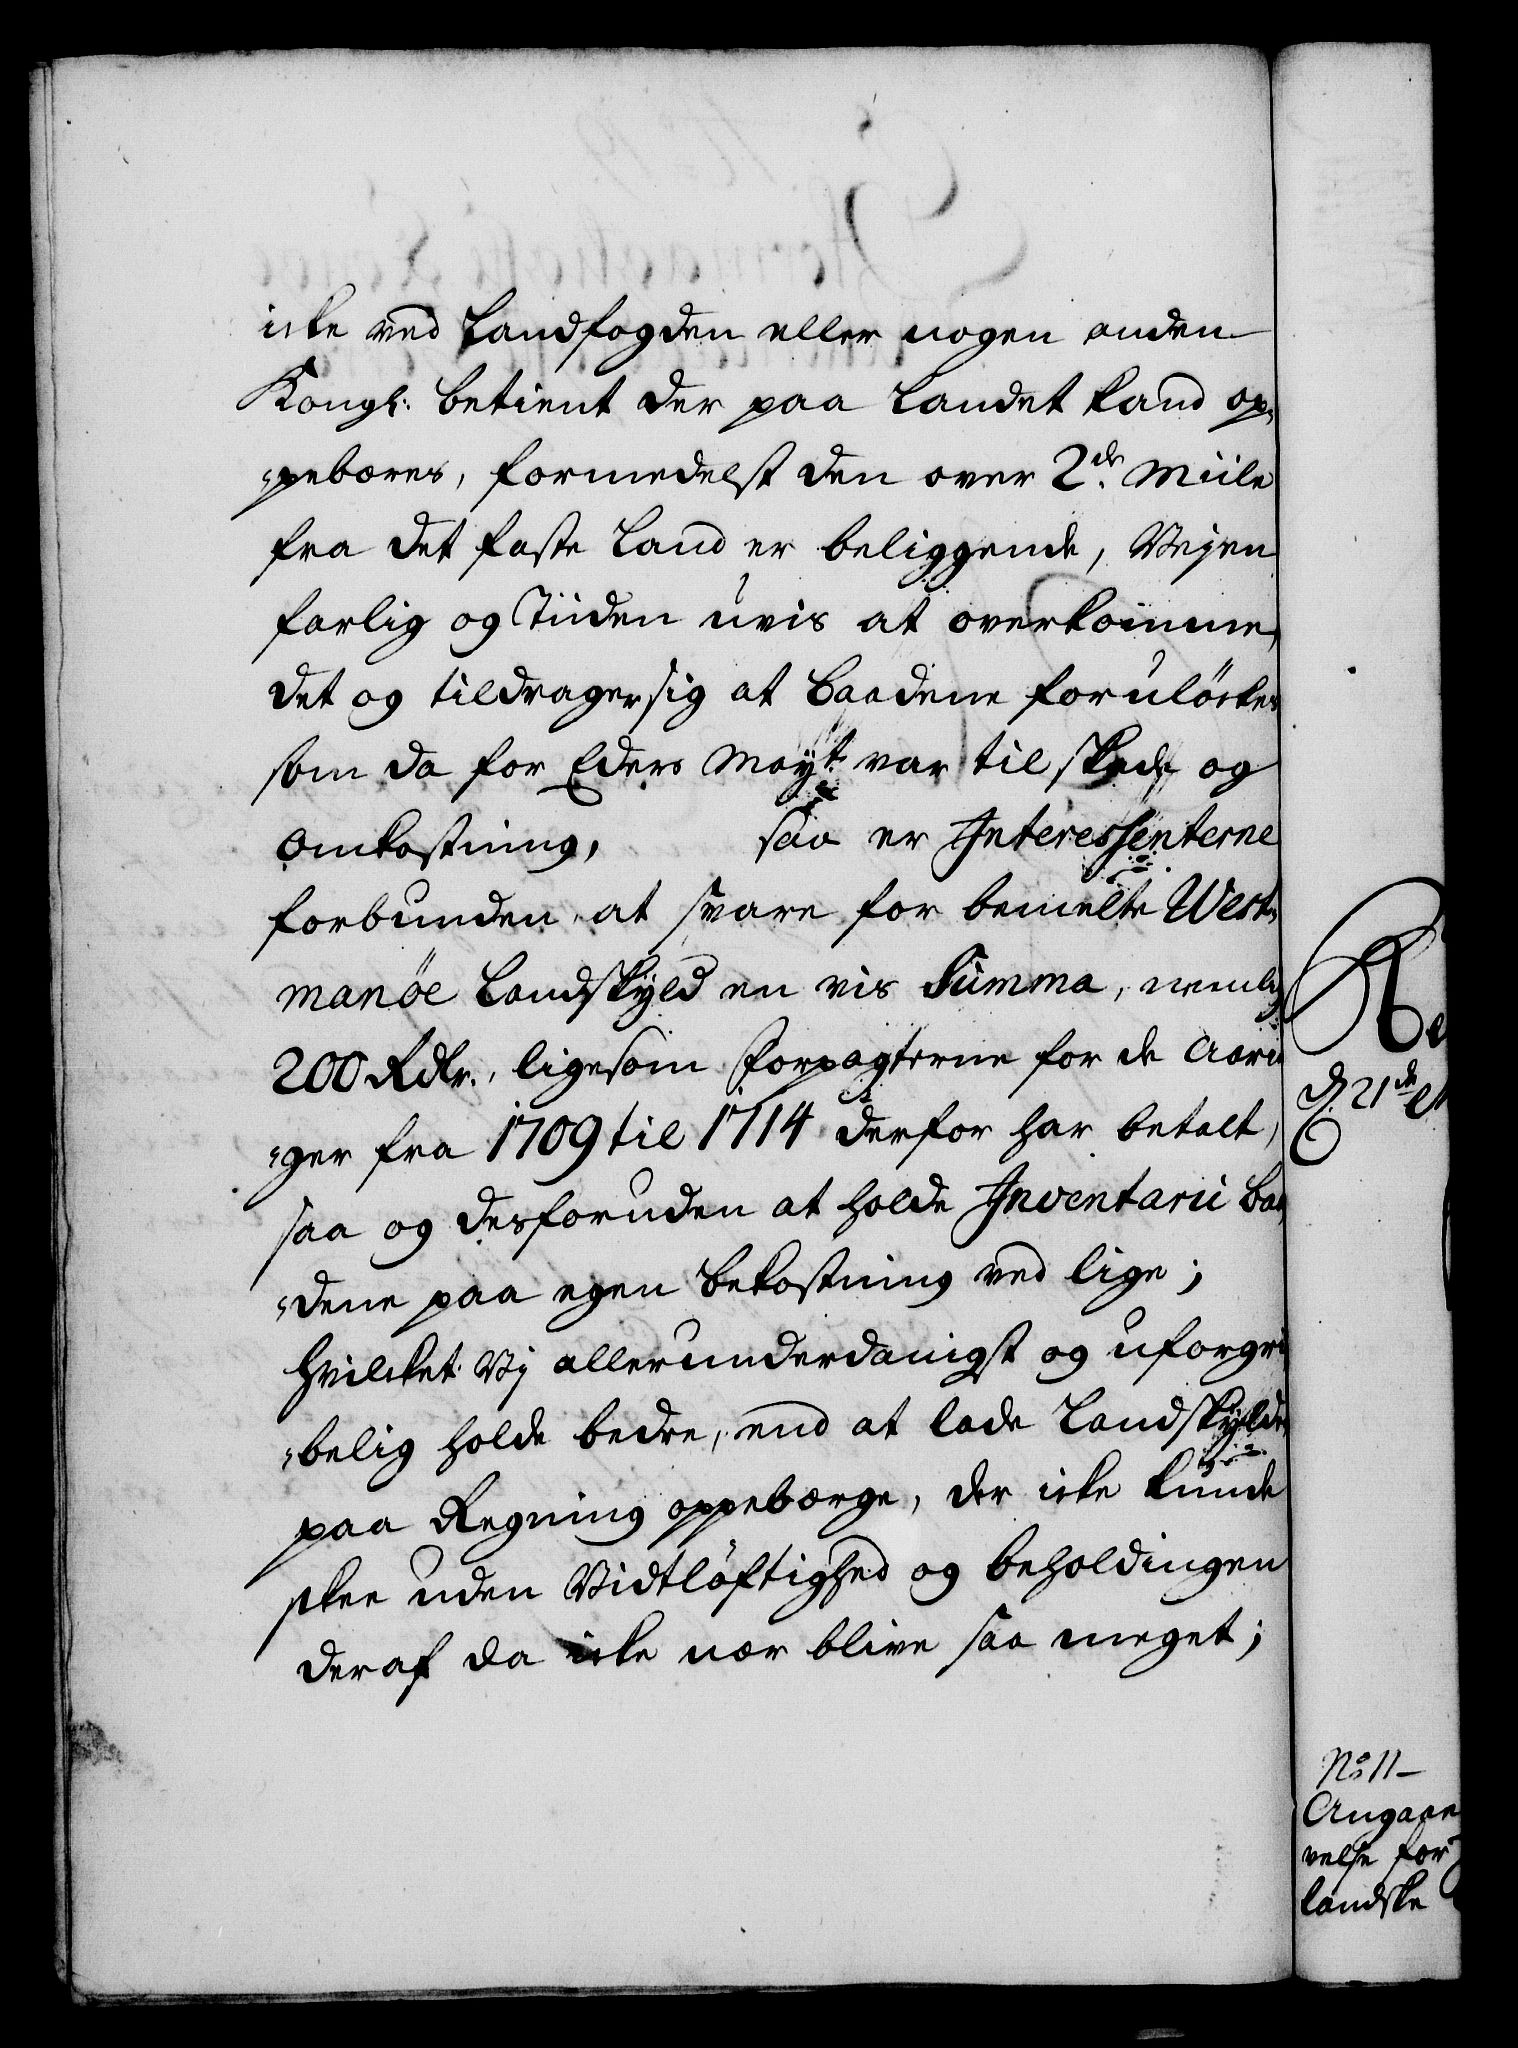 icke ved Landfogden eller nogen anden
Kongl: betient der paa Landet kand op„
„pebæres, formedelst den over 2de Miile
fra det faste Land er beliggende, Vejen
farlig og Tiiden uvis at overkomme,
det og tildrager sig at Baadene forulöckes
som da for Eders Mayt: var til skade og
omkostning, saa er Interessenterne
forbunden at svare for bemelte West„
manöe Landskyld en vis Summa, nemlig
200 Rdlr., ligesom Forpagterne for de Aarin
„ger fra 1709 til 1714 derfor har betalt,
saa og desforuden at holde Inventarii Baa„
„dene paa egen bekostning ved lige;
hvilcket Vj allerunderdanigst og uforgri
„belig holde bedre, end at lade Landskylden
paa Regning oppebærge, der icke kunde
skee uden Vidtløftighed og beholdingen
deraf da icke nær blive saa meget;
Re
d. 21de
No 11 -
Angaae
velse for
landske